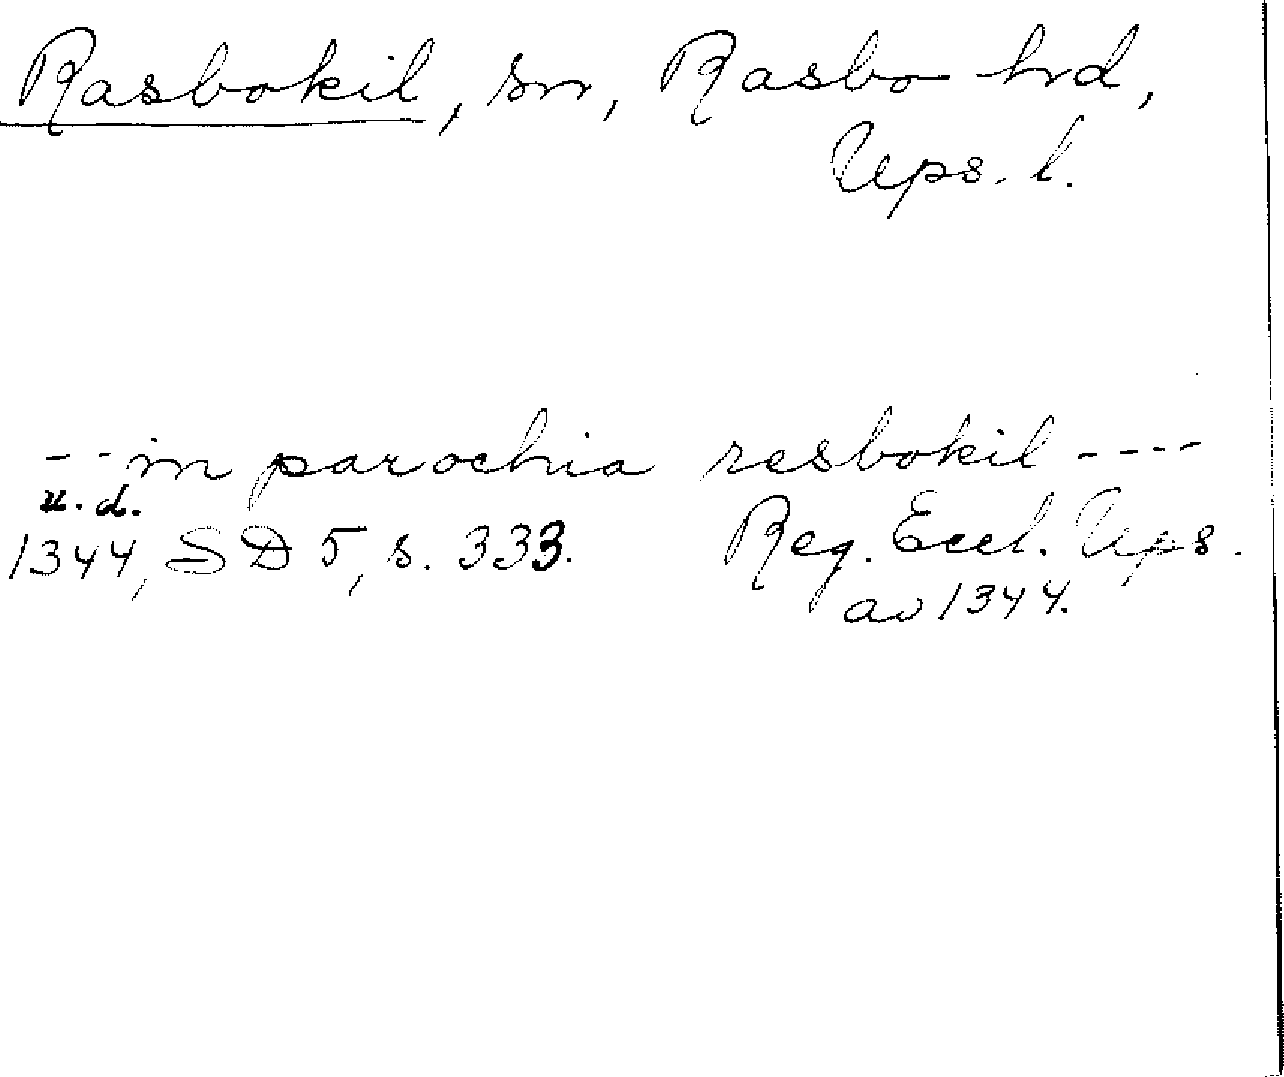 Rasbokil, sn, Rasbo hd,
Ups. l.
-- in parochia resbokil ----
u. d.
1344, SD 5, s. 333. Reg. Eccl. Ups.
av 1344.